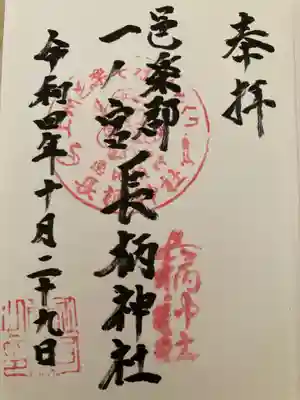 奉拝
邑楽郡
一ノ宮 長柄神社
令和四年十月二十九日
長柄神社